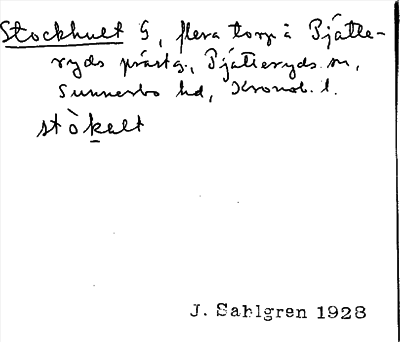 Stockhult S, flera torp å Pjätte-
ryds prästg., Pjätteryds sn,
Sunnerbo hd, Kronob. l.
stòkalt
J. Sahlgren 1928